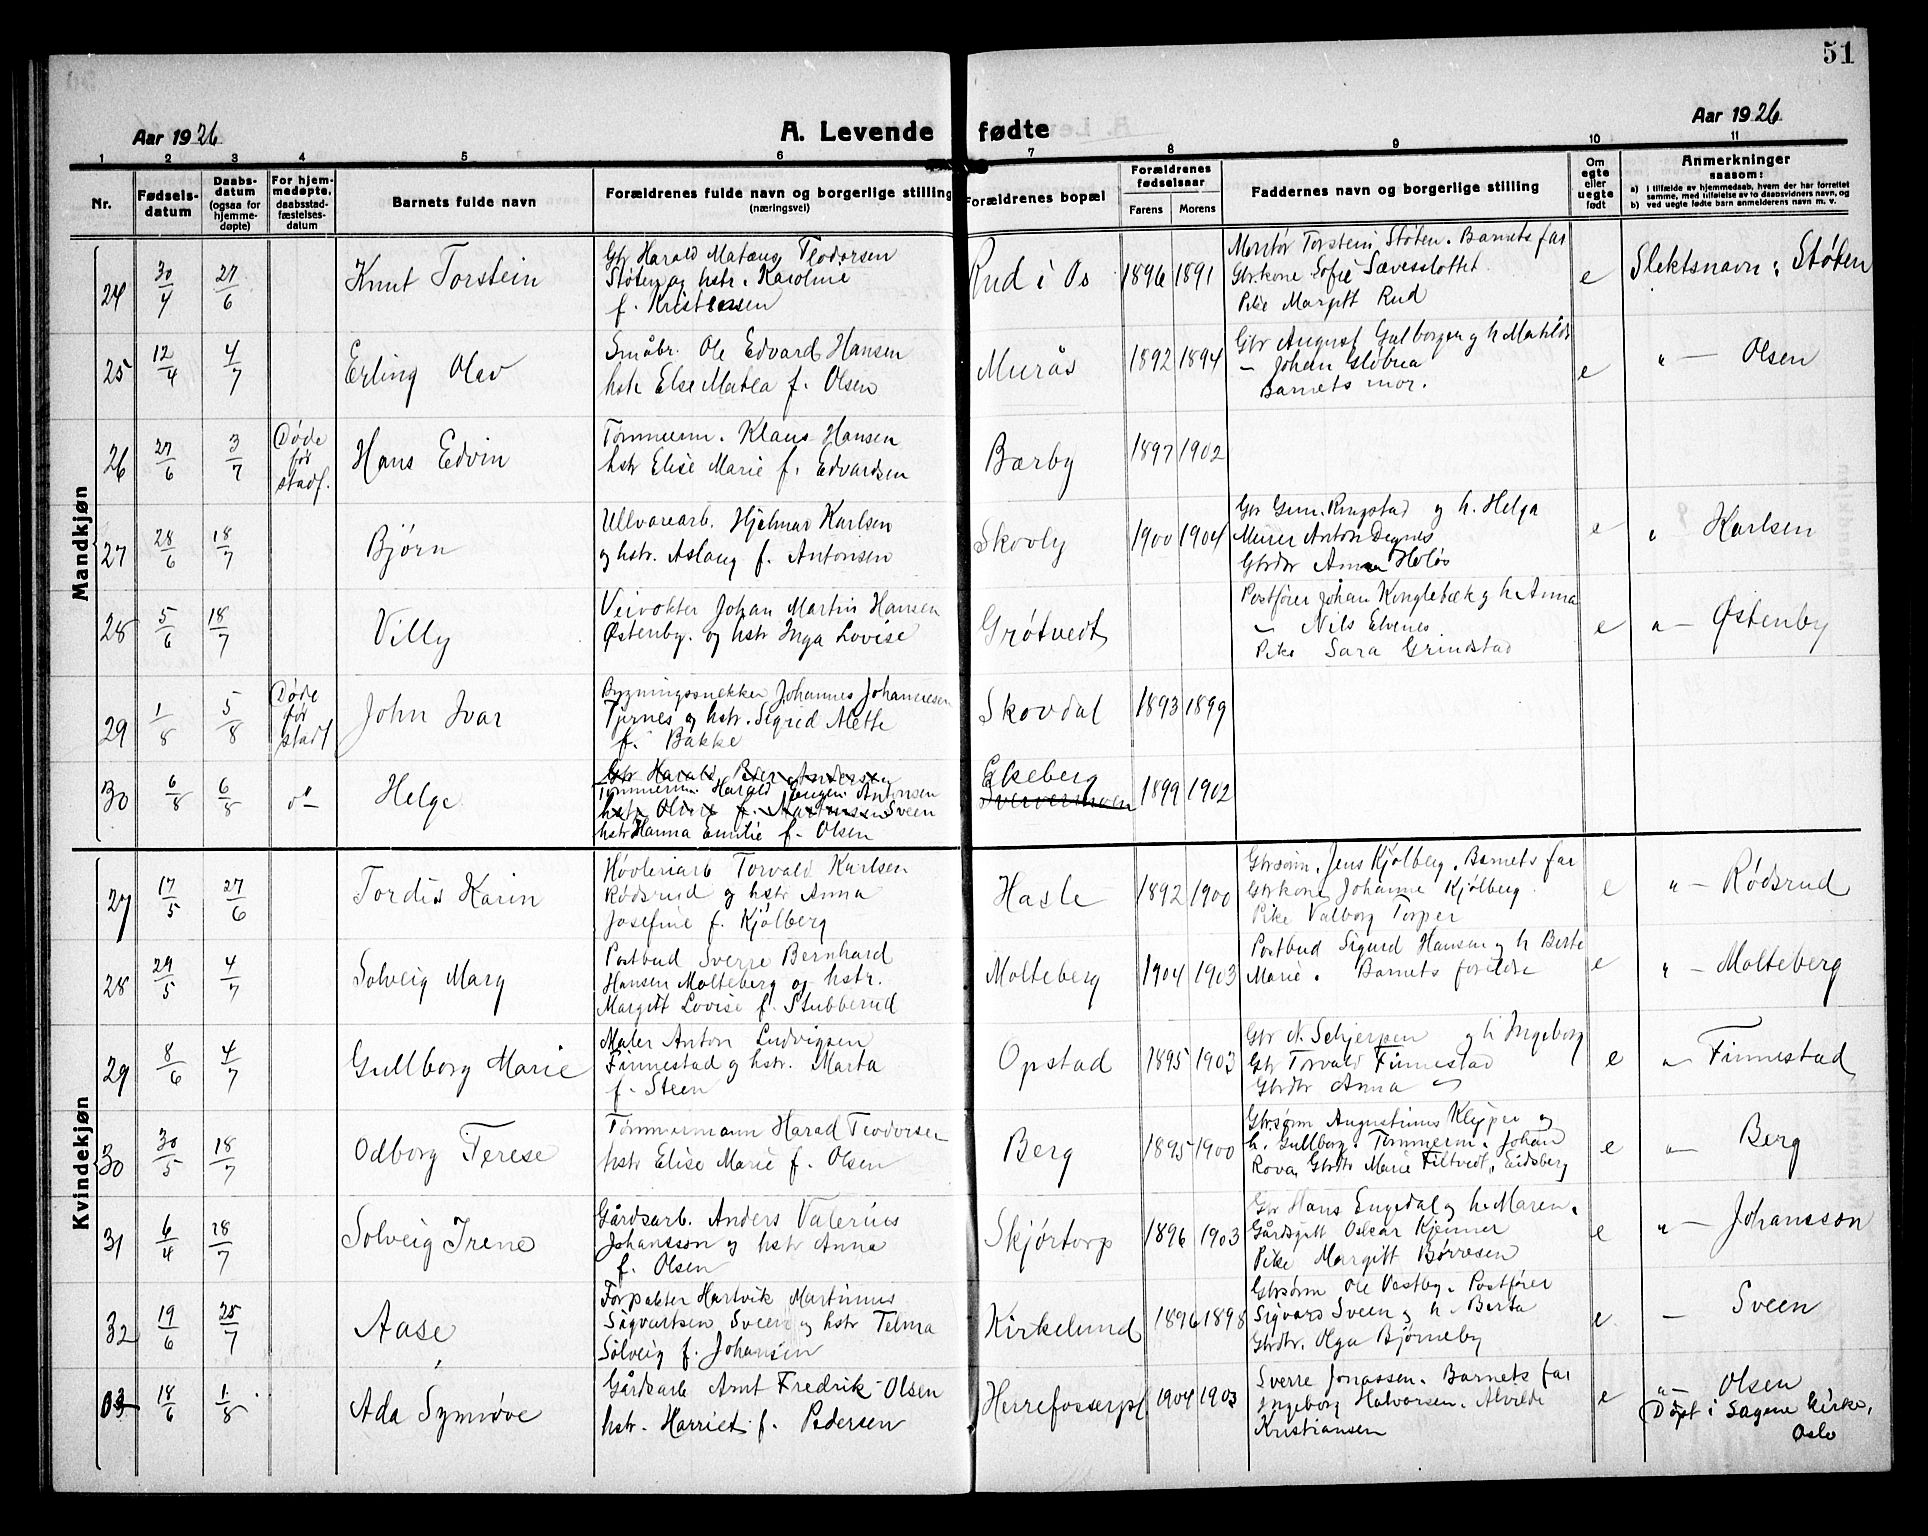 51
Aar 1926
A. Levende fødte
Aar 1926
1 2 3 4 5 6 7 8 9 10 11
Nr.
Fødsels-
datum
Daabs-
datum
(ogsaa for
hjemme-
døpte)
For hjem-
medøpte,
daabsstad-
fæstelses-
datum
Barnets fulde navn
Forældrenes fulde navn og borgerlige stilling
(næringsvei)
Forældrenes bopæl
Forældrenes
fødselsaar
Farens Morens
Faddernes navn og borgerlige stilling
Om
egte
eller
uegte
født
Anmerkninger
saasom:
a) i tilfælde av hjemmedaab, hvem der har forrettet
samme, med tilføielse av to daabsvidners navn, og
b) ved uegte fødte barn anmelderens navn m. v.
Mandkjøn
24 30/4 27/6 Knut Torstein
Gbr Harald Matæus Teodorsen
Støten og hstr. Karoline
f. Kristensen
Rud i Os 1896 1891
Montør Torstein Støten. Barnets far
Gbrkone Sofie Sævesslottet
Pike Margitt Rud
e Slektsnavn: Støten
25 12/4 4/7 Erling Olav
Småbr. Ole Edvard Hansen
hstr Else Matea f. Olsen
Murås 1892 1894
Gbr August Gulborgen og h Matilde
— Johan Gløbua
Barnets mor.
e " — Olsen
26 27/6 3/7 Døde
før
stadf.
Hans Edvin
Tømmerm. Klaus Hansen
hstr Elise Marie f. Edvardsen
Bærby 1897 1902
27 28/6 18/7 Bjørn
Ullvarearb. Hjelmar Karlsen
og hstr. Aslaug f. Antonsen
Skovly 1900 1904
Gbr Gun. Ringstad og h. Helga
Murer Anton Degnes
Gbrdtr Anna Holøs
e " Karlsen
28 5/6 18/7 Villy
Veivokter Johan Martin Hansen
Østenby. og hstr Inga Lovise
Grøtvedt
Postfører Johan Kongletæk og h Anna
— Nils Elvenes
Pike Sara Grindstad
e " — Østenby
29 1/8 5/8 Døde
før
stadf
John Ivar
Bygningssnekker Johannes Johannesen
Tjernes og hstr. Sigred Mette
f. Bakke
Skovdal 1893 1899
30 6/8 6/8 do Helge
Gbr Harald Peer Andersen
Tømmerm. Harald Jørgen Antonsen
hstr Oline f. Martinsen Sveen
hstr Hanna Emilie f. Olsen
Ekeberg
1899 1902
Kvindekjøn
27 17/5 27/6 Tordis Karin
Høvleriarb Torvald Karlsen
Rødsrud og hstr Anna
Josefine f. Kjølberg
Hasle 1892 1900
Gbrsønn. Jens Kjølberg. Barnets far
Gbrkone Johanne Kjølberg
Pike Valborg Torper
e " — Rødsrud
28 29/5 4/7 Solveig Mary
Postbud Sverre Bernhard
Hansen Molteberg og hstr.
Margitt Lovise f. Stubberud
Molteberg 1904 1903
Postbud Sigurd Hansen og h Berte
Marie. Barnets foreldre
e " — Molteberg
29 8/6 4/7 Gullborg Marie
Maler Anton Ludvigsen
Finnestad og hstr. Marta
f. Steen
Opstad 1895 1903
Gbr N. Schjerpen og h Ingeborg
Gbr Torvald Finnestad
Gbrdtr Anna —
e " Finnestad
30 30/5 18/7 Odborg Terese
Tømmermann Harad Teodorsen
hstr Elise Marie f. Olsen
Berg 1895 1900
Gbrsønn Augustinus Klypper og
h. Gullborg. Tømmerm. Johan
Rova, Gbrdtr Marie Filtvedt, Eidsberg
e " Berg
31 6/4 18/7 Solveig Irene
Gårdsarb. Anders Valerius
Johansson og hstr Anna
f. Olsen
Skjørtorp 1896 1903
Gbr Hans Engedal og h. Maren.
Gårdsgitt Oskar Kjenner
Pike Margitt Børresen
e " — Johansson
32 19/6 25/7 Aase
Forpakter Hartvik Martinius
Sigvartsen Sveen og hstr Telma
Solveig f. Johansen
Kirkelund 1896 1898
Gbrsønn Ole Vestby. Postfører
Sigvard Sveen og h. Berta
Gbrdtr. Olga Bjørneby
e — Sveen
33 18/6 1/8 Ada Synnøve
Gårdsarb Arnt Fredrik Olsen
hstr. Harriet f. Pedersen
Herrefosserpl 1904 1903
Sverre Jonassen. Barnets far
Ingeborg Halvorsen. Alvilde
Kristiansen
e "— Olsen
Døpt i Sagene kirke,
Oslo